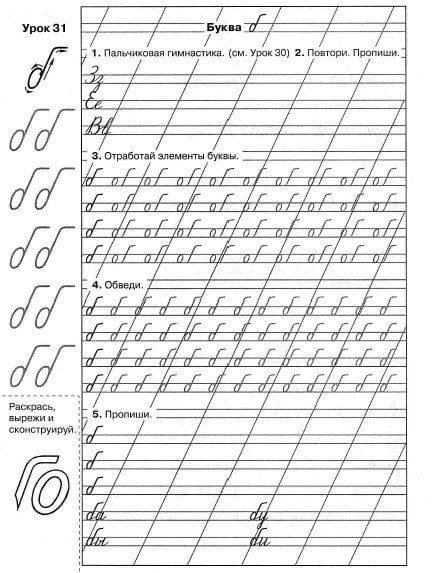 Урок 31
Буква б
1. Пальчиковая гимнастика. (см. Урок 30) 2. Повтори. Пропиши.
Зз
Ее
Вв
3. Отработай элементы буквы.
4. Обведи.
б б б б б б б б б б б б б
б б б б б б б б б б б б б
б б б б б б б б б б б б б
б б б б б б б б б б б б б
Раскрась,
вырежи и
сконструируй.
5. Пропиши.
б
б
б
ба бу
бы би